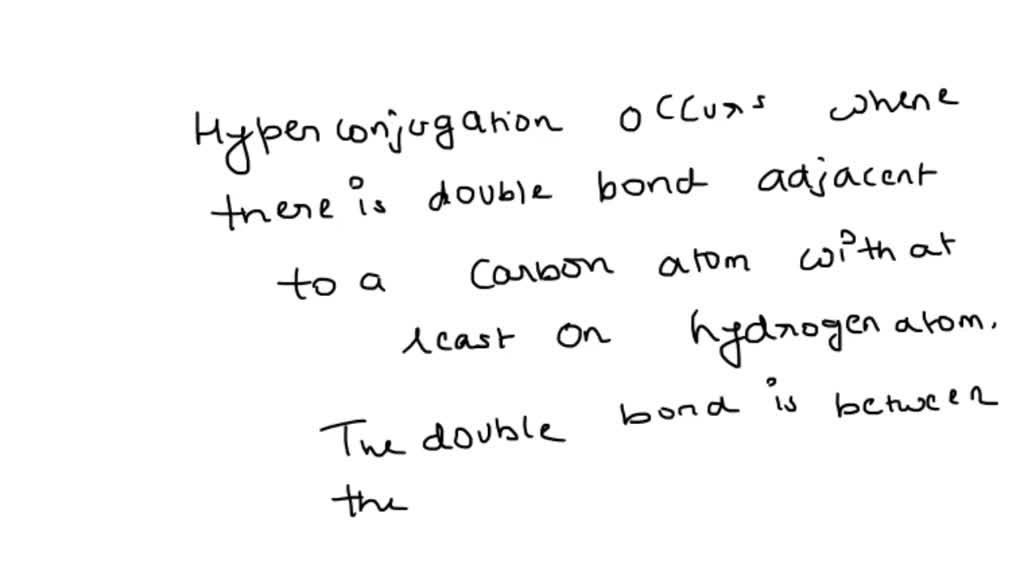 Hyperconjugation occurs where
there is double bond adjacent
to a carbon atom with at
least on hydrogen atom.
The double bond is between
the